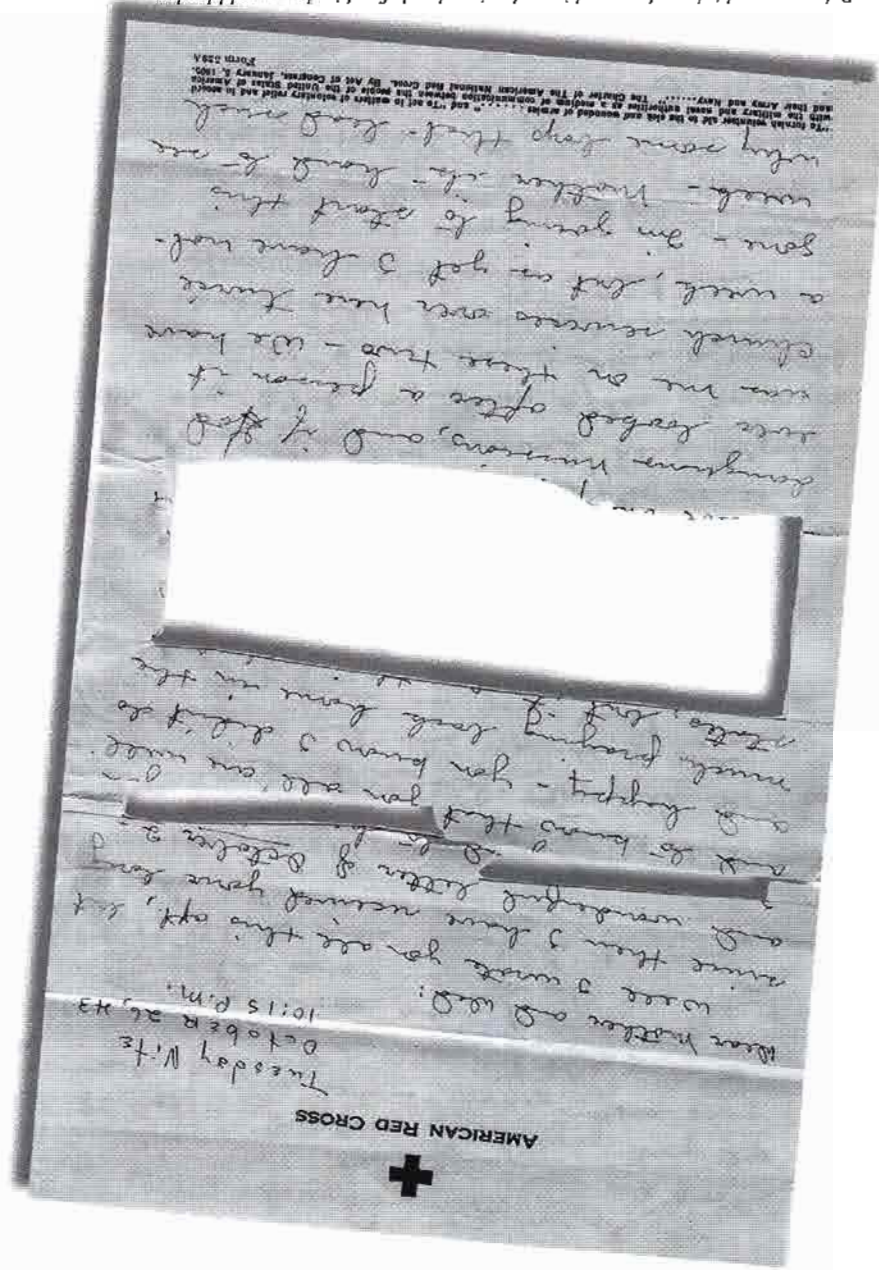 AMERICAN RED CROSS
Tuesday Nite
OctobER 26, 43
10:15 P.M.
Dear Mother and Dad:
Well I wrote you all this aft, but
since then I have received your long
and wonderful letter of October
and to know that you all are well
and happy - you know I didn't do
much praying back home in the
states, but if
dangerous missions, and if God
ever looked after a person it
was me on these two - We have
Church services over here twice
a week, but as yet I have not
gone - I'm going to start this
week - Mother it's hard to see
why some boys that lead such
"To furnish volunteer aid to the sick and wounded of armies ........" and "To act in matters of voluntary relief and in accord
with the military and naval authorities as a medium of communication between the people of the United States of America
and their Army and Navy........" The Charter of The American National Red Cross. By Act of Congress, January 5, 1905.
Form 539A